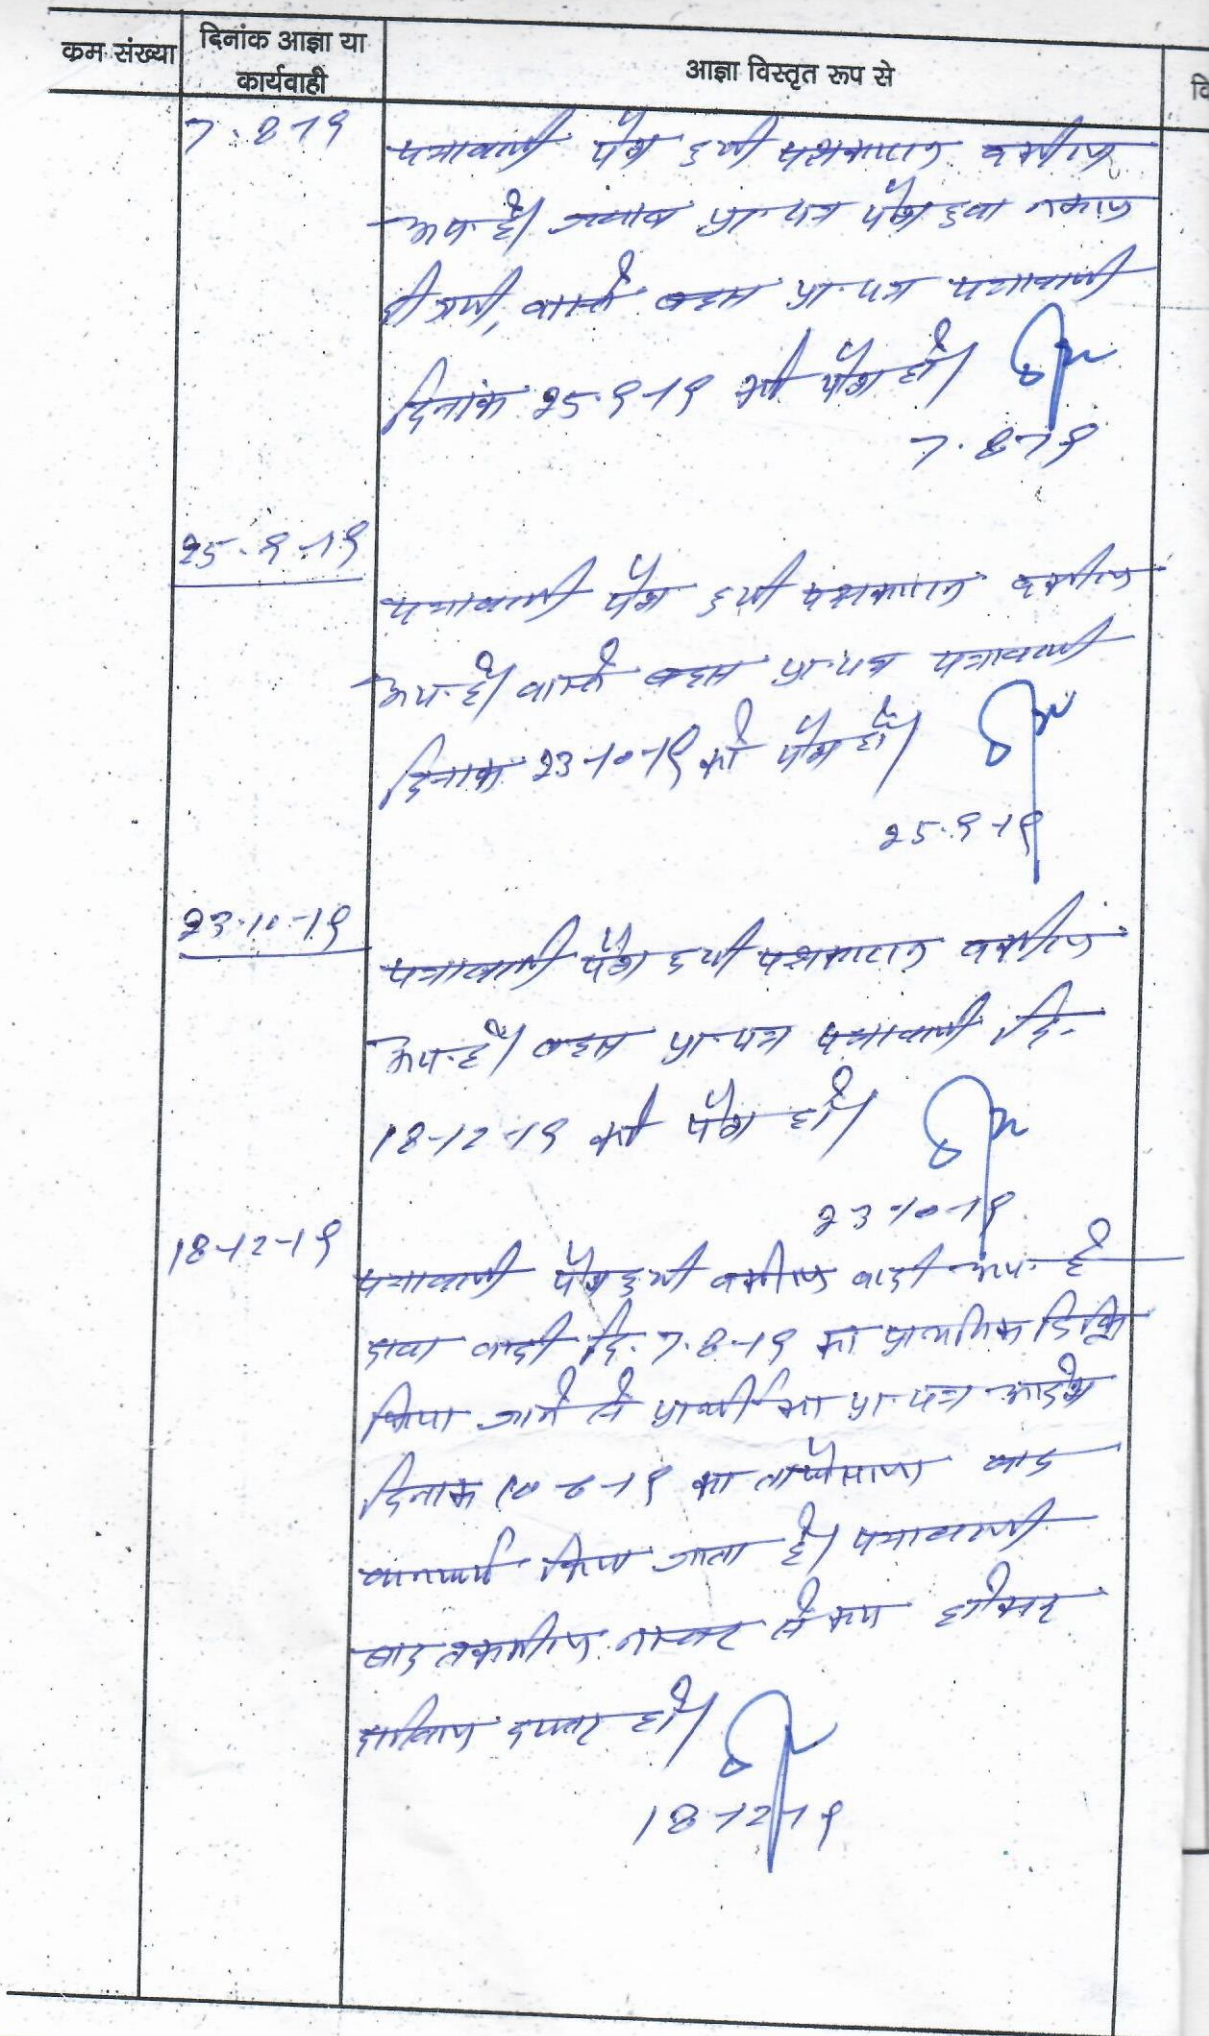 क्रम संख्या
दिनांक आज्ञा या
कार्यवाही
आज्ञा विस्तृत रूप से
वि
7.8.19
पत्रावली पेश हुयी पक्षकारान वकील
उप. है। जवाब प्रा. पत्र पेश हुवा नकल
दी गयी, वास्ते बहस प्रा. पत्र पत्रावली
दिनांक 25.9.19 को पेश हो।
7.8.19
25.9.19
पत्रावली पेश हुयी पक्षकारान वकील
उप. है। वास्ते बहस प्रा. पत्र पत्रावली
दिनांक 23-10-19 को पेश हो।
25.9.19
23.10.19
पत्रावली पेश हुयी पक्षकारान वकील
उप. है। बहस प्रा. पत्र पत्रावली दि.
18-12-19 को पेश हो।
23-10-19
18-12-19
पत्रावली पेश हुयी वकील वादी उप. है
दावा वादी दि. 7.8.19 को प्राथमिक डिक्री
किया जाने से प्रार्थी का प्रा. पत्र आदेश
दिनांक 10-6-19 का बाद
किया जाता है। पत्रावली
बाद तकमील नम्बर से कम होकर
दाखिल दफ्तर हो।
18-12-19